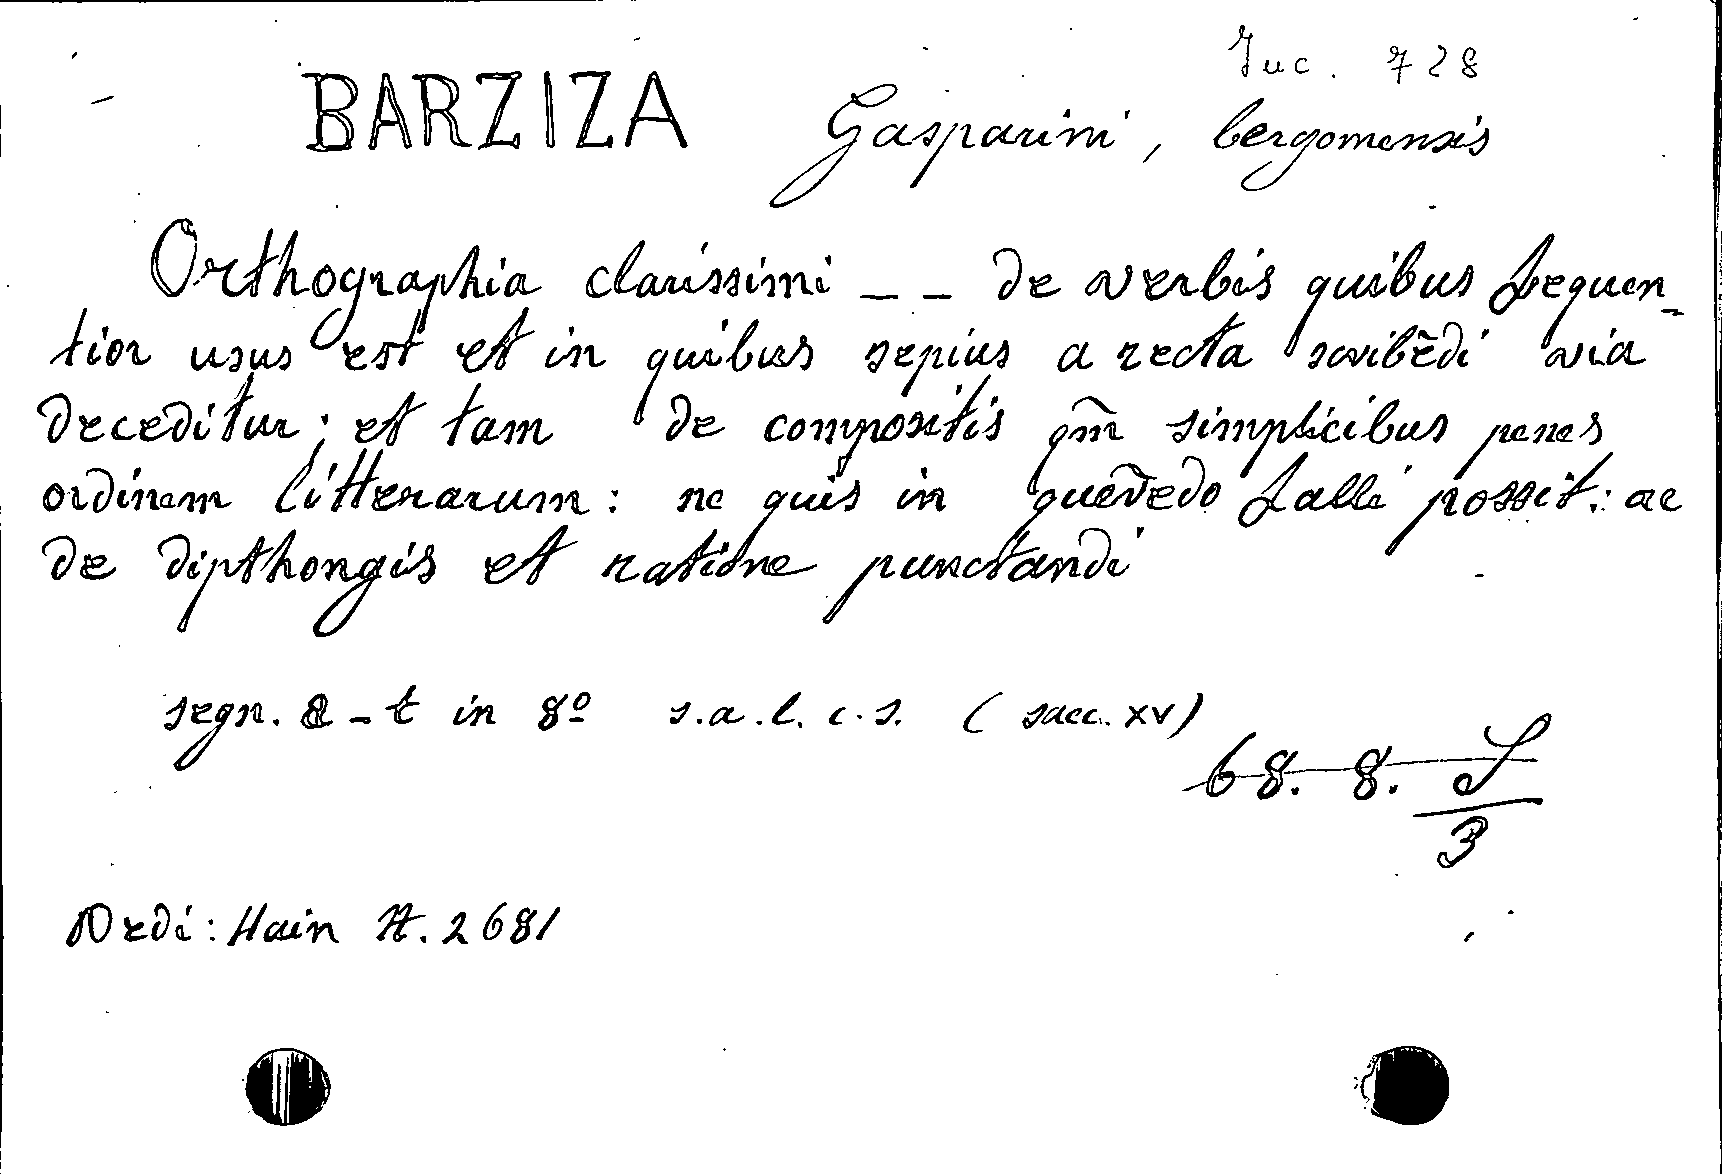 Inc. 728
BARZIZA Gasparini, bergomensis
Orthographia clarissimi _ _ de verbis quibus frequen_
tior usus est et in quibus sepius a recta scribēdi via
deceditur; et tam de compositis qm̄ simplicibus penes
ordinem litterarum: ne quis in quēvedo falli possit: ac
de dipthongis et ratione punctandi
segn. a - t in 8º s.a.l.c.s. (saec. XV)
68. 8. S
3
Vedi: Hain N. 2681